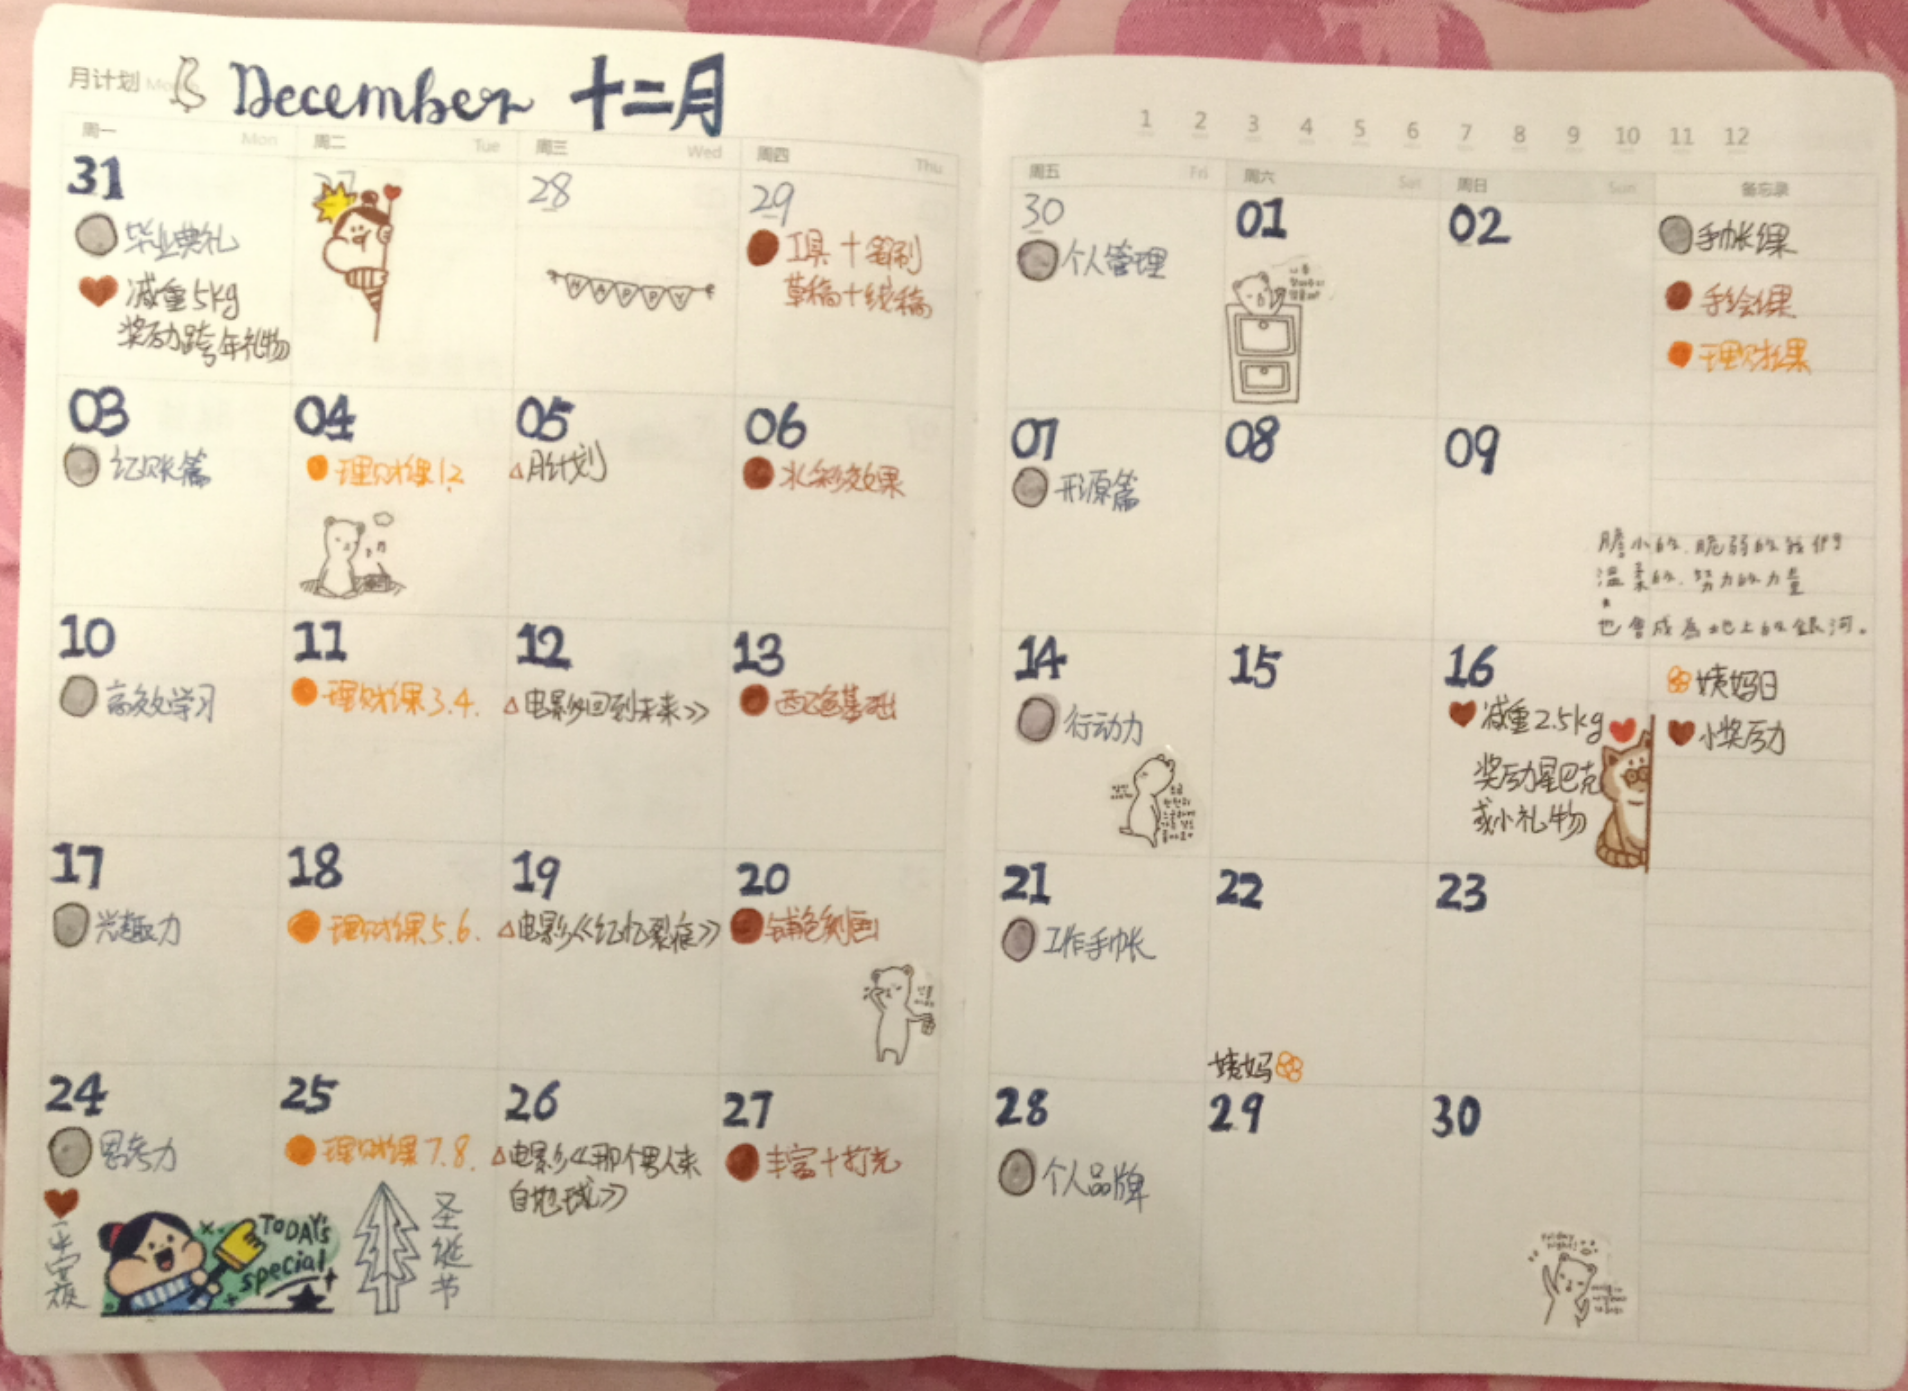 月计划
December 十二月
1 2 3 4 5 6 7 8 9 10 11 12
周一 Mon 周二 Tue 周三 Wed 周四 Thu 周五 Fri 周六 Sat 周日 Sun 备忘录
31
毕业典礼
减重5kg
奖励跨年礼物
27
28
HAPPY
29
工具+临刻
草稿+线稿
30
个人管理
01
02
手帐课
手绘课
理财课
03
记账篇
04
理财课1.2.
05
月计划
06
水彩效果
07
形原篇
08
09
膽小的、脆弱的我們
溫柔的、努力的力量
也會成為地上的銀河。
10
高效学习
11
理财课3.4.
12
电影《回到未来》
13
配色基础
14
行动力
15
16
减重2.5kg
奖励星巴克
或小礼物
姨妈日
小奖励
17
兴趣力
18
理财课5.6.
19
电影《红忆裂痕》
20
铺色刻画
21
工作手帐
22
姨妈
23
24
思考力
平安夜
TODAY's
special
25
理财课7.8.
圣诞节
26
电影《那个男人来
自地球》
27
丰富+打光
28
个人品牌
29
30